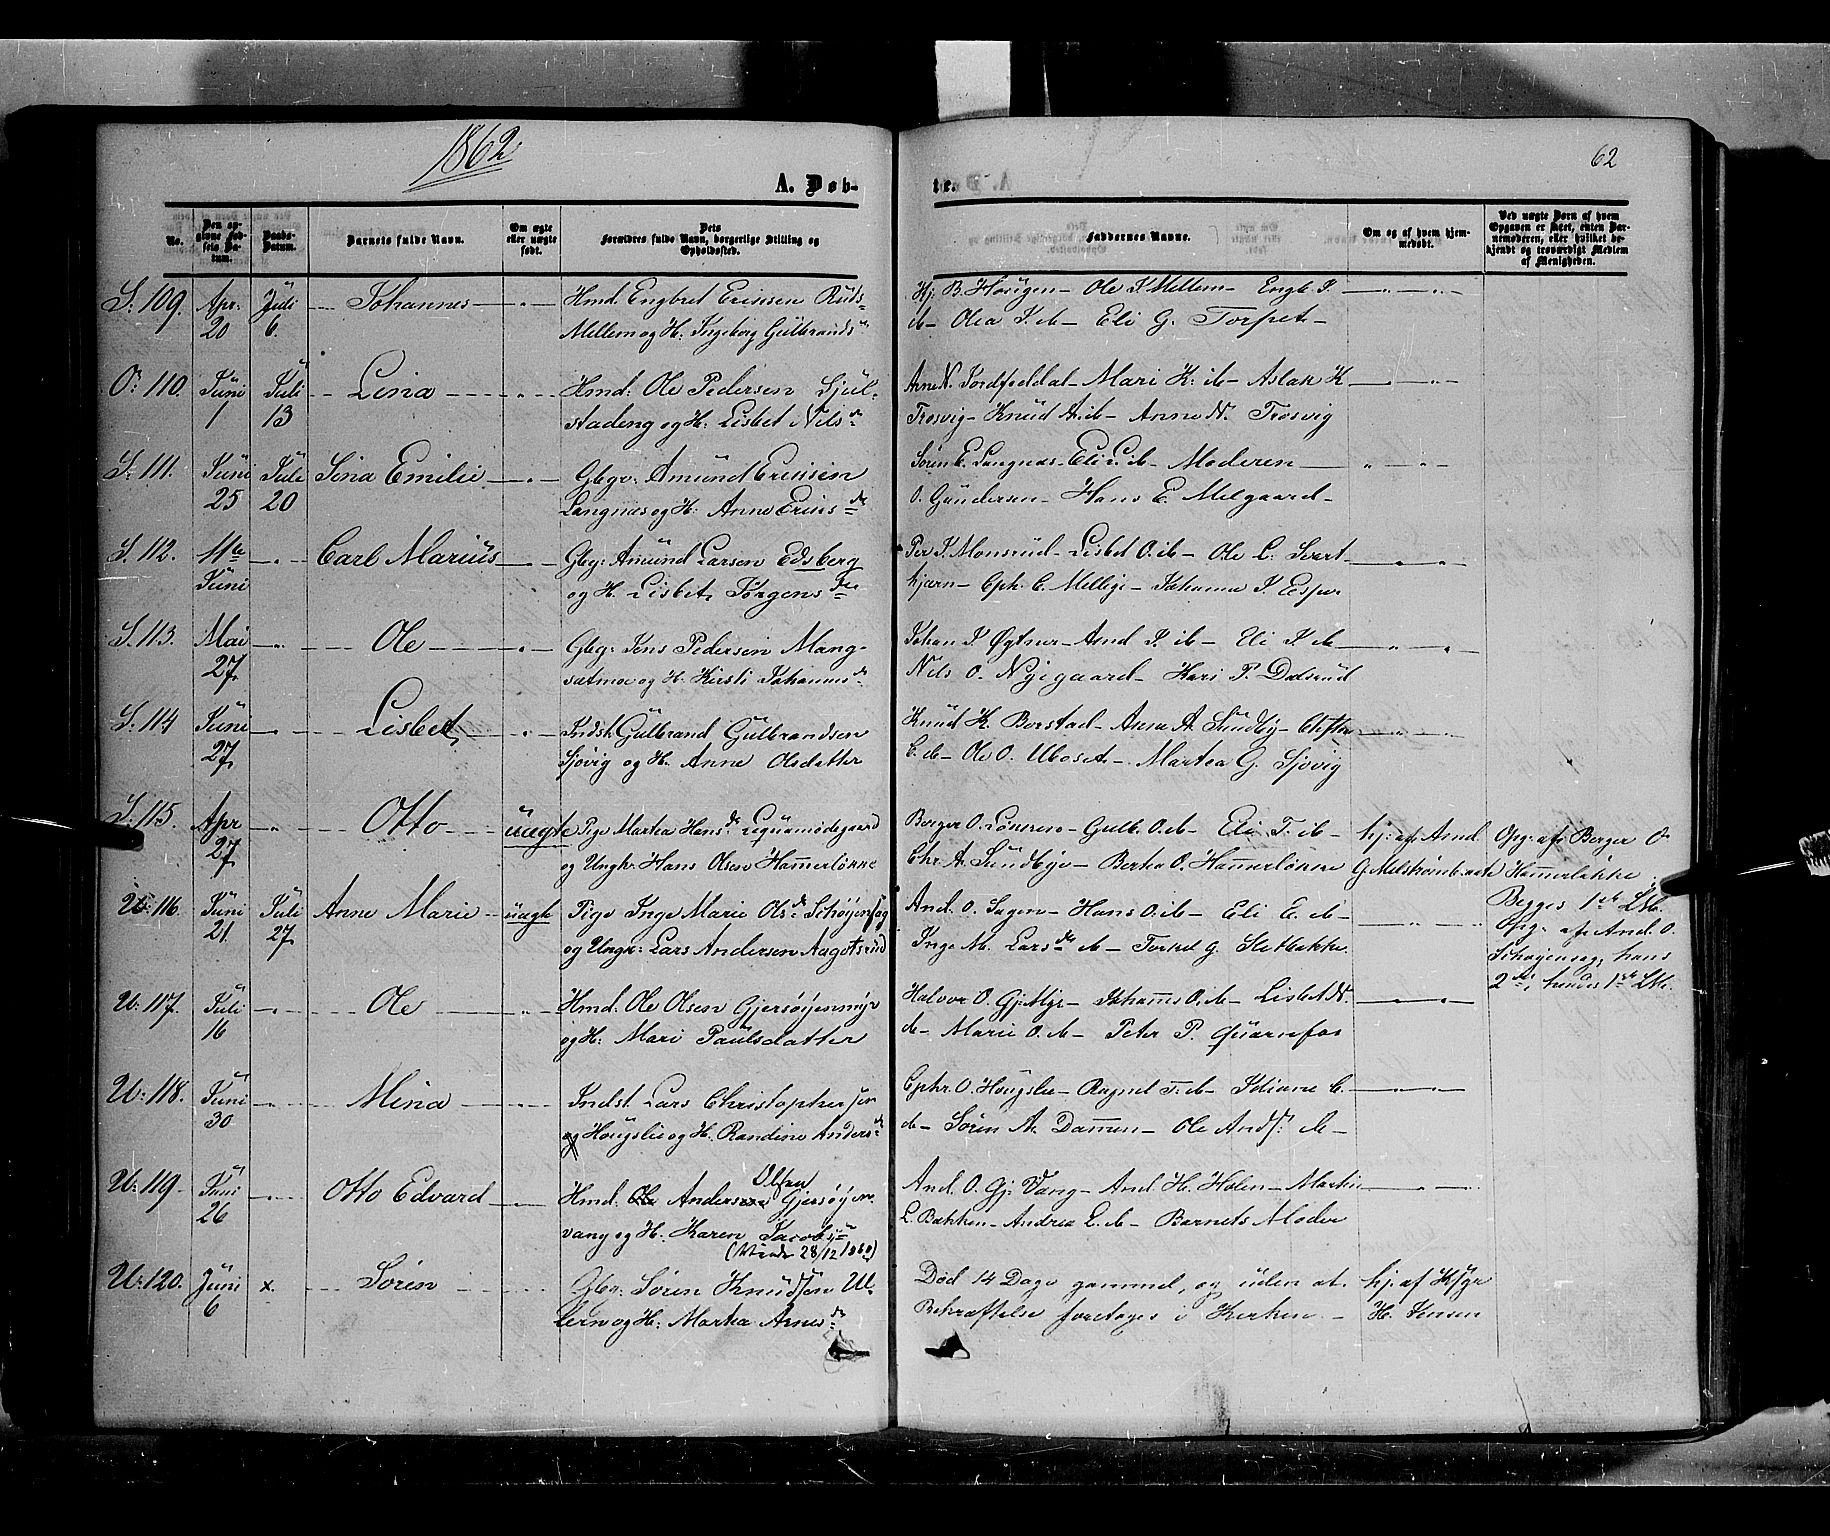 1862
62
A. Døb-
te.
No.
Den op-
givne Fød-
sels Da-
tum.
Daabs-
Datum.
Barnets fulde Navn.
Om ægte
eller uægte
født.
Dets
Forældres fulde Navn, borgerlige Stilling og
Opholdssted.
Faddernes Navne.
Om og af hvem hjem-
medøbt.
Ved uægte Børn af hvem
Opgaven er skeet, enten Bar-
nemoderen, eller hvilket be-
kjendt og troværdigt Medlem
af Menigheden.
S. 109. Apr. 20 Juli 6. Johannes Hmd. Engbret Erinsen Ruds-
Mellem og H. Ingeborg Gulbrandsdr
Hj. B. Haugen - Ole J. Mellem - Engb. J.
ib - Olea J. ib - Eli G. Torpet -
O. 110. Juni 1 Juli 13 Lina Hmd: Ole Pedersen Sjul-
stadeng og H: Lisbet Nilsdr
Arne N. - Mari K. ib - Aslak K
Trosvig - Knud A. ib - Anne N. Trosvig
S. 111. Juni 25 Juli 20 Sina Emilie Gbgr: Amund Erinsen
Langnæs og H: Anne Erinsdr
Søren E. Langnæs - Eli L. ib - Moderen
O. Gundersen - Hans E. Melgaard -
S. 112. 11te Juni Carl Marius Gbg: Amund Larsen Edsberg
og H. Lisbet Jørgensdr
Per J. Monsrud - Lisbet O. ib - Ole L. Svart-
kjærn - Cph. C. Mellige - Johanna J. Esper
S. 113. Mai 27 Ole Gbg: Jens Pedersen Mang-
sætmoe og H. Kirsti Johannisdr
Johan J. Øgtner - And. J. ib - Eli J. ib
Nils O. Nygaard - Kari P. Dalsrud
S. 114 Juni 27 Lisbet Indst. Gulbrand Gulbrandsen
Sjøvig og H. Anne Olsdatter
Knud K. Borstad - Anna A. Sundby -
C. ib - Ole O. Uboset - Martea G. Sjøvig
S. 115. Apr 27 Otto uægte Pige Martea Hansdr
og Ungkr Hans Olsen Hammerløkke
Berger O. - Gulb. O. ib - Eli T. ib -
Chr. A. Sundbye - Berthe O. Hammerløkke
hj: af And.
G.
Opg: af Berger O
Hammerløkke
Begges 1ste LM.
U. 116. Juni 21. Juli 27 Anne Marie uægte Pige Inge Marie Olsdr Schøyensag
og Ungkr: Lars Andersen Aagotsrud
And. O. Sagen - Hans O. ib - Eli E. ib -
Inge M. Larsdr ib - Torkel G. Sletbakke.
Opg. af And. O.
Schøyensag, hans
2det, hendes 1ste LM.
U. 117. Juli 16 Ole Hmd. Ole Olsen Gjersøyenmyr
og H: Mari Paulsdatter
Halvor O. Gj.Myr - Johanns O. ib - Lisbet N.
ib - Marie O. ib - Peter P. Quarnefos
U. 118. Juni 30 Mina Indst. Lars Christophersen
og Hougslie og H. Randine Andersdr
Cphr. O. Hougslie - Ragnel T. ib - Idiane C.
ib - Søren A. Dammen - Ole Ands: ib -
U. 119. Juni 26 Otto Edvard Hmd. Ole Andersen Olsen Gjersøyen-
vang og H. Karen Jacobs
(28/12 1860)
And. O. Gj. Vang - And. H. Holen - Marthe
L. Bakken - Andrea L. ib - Barnets Moder
U. 120. Juni 6 x. Søren Gbr: Søren Knudsen Ul-
lern og H: Marthea Arnesdr
Død 14 Dage gammel, og uden at
Bekræftelse foretoges i Kirken -
hj. af
H. Jensen